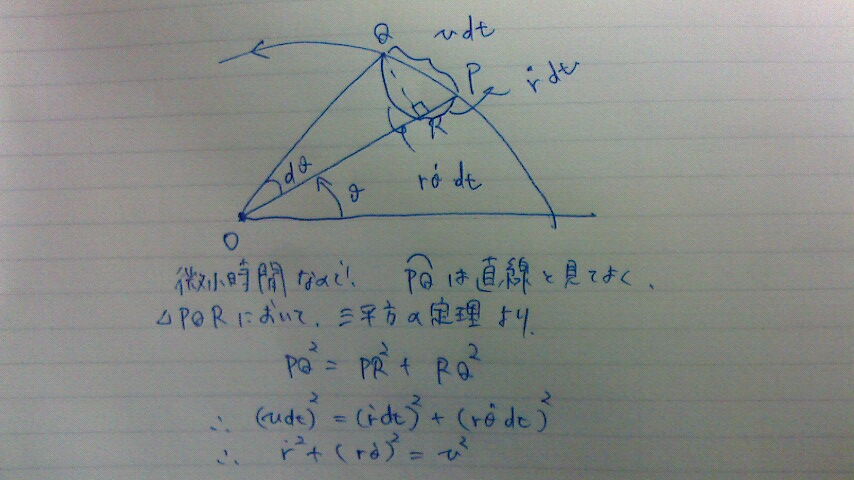 Q
vdt
P
ṙdt
R
dθ
θ
rθ̇ dt
O
微小時間なので、 PQ は直線と見てよく、
△PQRにおいて、三平方の定理より、
PQ² = PR² + RQ²
∴ (vdt)² = (ṙdt)² + (rθ̇dt)²
∴ ṙ² + (rθ̇)² = v²